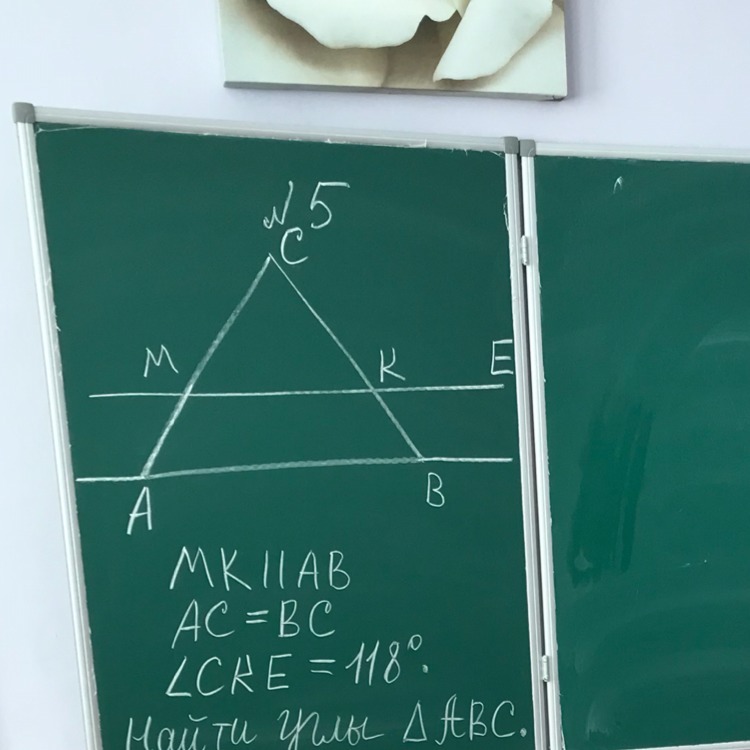 №5
C
M K E
A B
MK||AB
AC=BC
∠CKE=118°.
Найти углы △ABC.